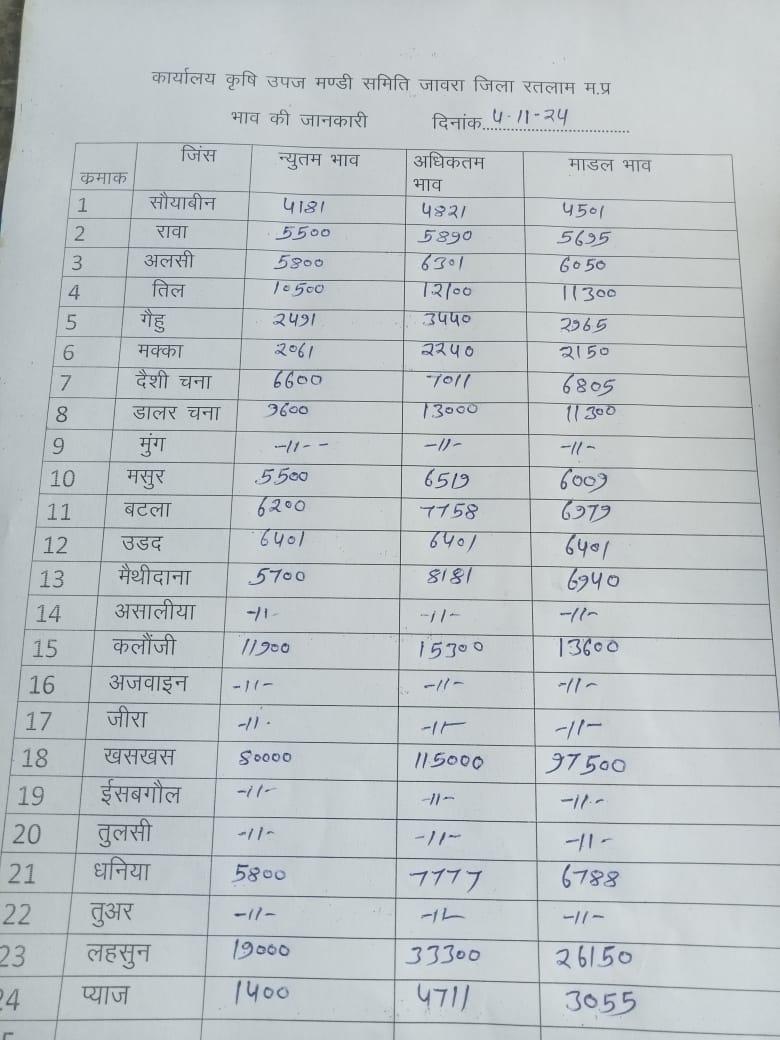 कार्यालय कृषि उपज मण्डी समिति जावरा जिला रतलाम म.प्र
भाव की जानकारी दिनांक 4-11-24
कमाक जिंस न्युतम भाव अधिकतम भाव माडल भाव
1 सौयाबीन 4181 4821 4501
2 रावा 5500 5890 5695
3 अलसी 5800 6301 6050
4 तिल 10500 12100 11300
5 गैहु 2491 3440 2965
6 मक्का 2061 2240 2150
7 दैशी चना 6600 7011 6805
8 डालर चना 9600 13000 11300
9 मुंग -11-- -11- -11-
10 मसुर 5500 6519 6009
11 बटला 6200 7758 6979
12 उडद 6401 6401 6401
13 मैथीदाना 5700 8181 6940
14 असालीया -11- -11- -11-
15 कलौंजी 11900 15300 13600
16 अजवाइन -11- -11- -11-
17 जीरा -11- -11- -11-
18 खसखस 80000 115000 97500
19 ईसबगौल -11- -11- -11-
20 तुलसी -11- -11- -11-
21 धनिया 5800 7777 6788
22 तुअर -11- -11- -11-
23 लहसुन 19000 33300 26150
24 प्याज 1400 4711 3055